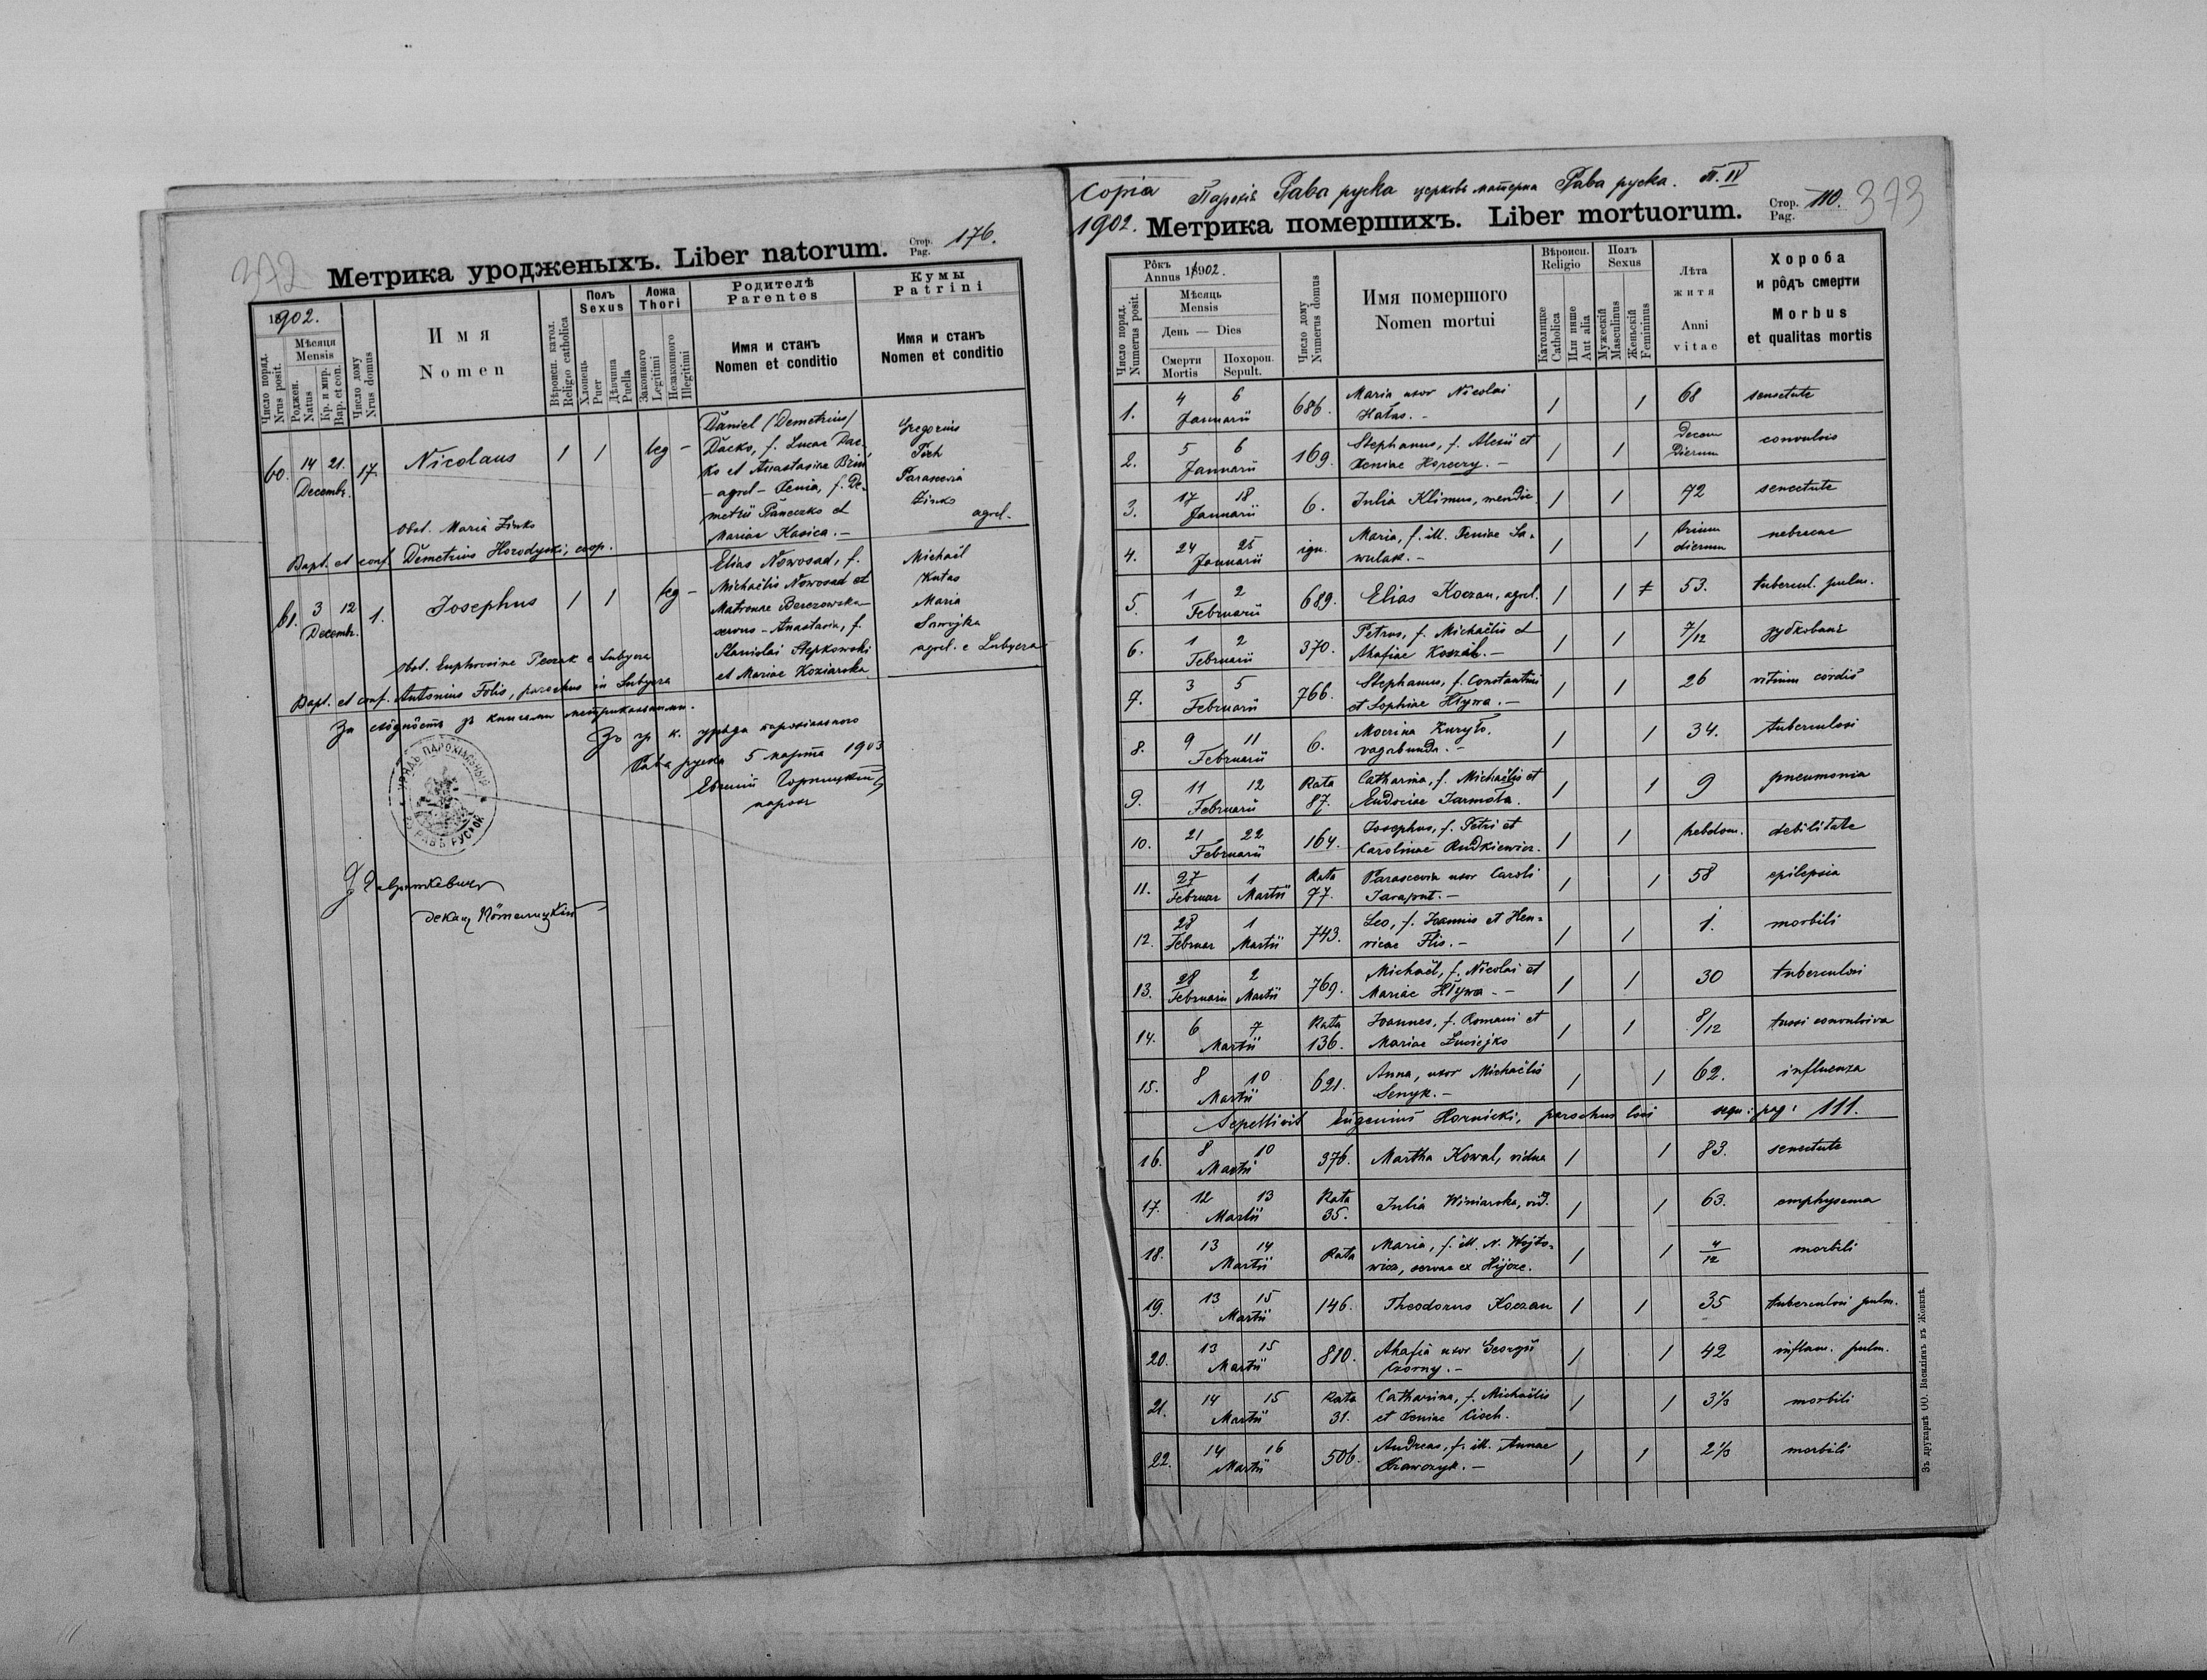 372
Метрика уродженыхъ. Liber natorum. Стор. Pag. 176.
1902.
Число поряд.
Nrus posit.
Мѣсяця
Mensis
Роджен.
Natus
Кр. и мир.
Bap. et con.
Число дому
Nrus domus
Имя
Nomen
Вѣроисп. катол.
Religio catholica
Полъ
Sexus
Хлопець
Puer
Дѣвчина
Puella
Ложа
Thori
Законного
Legitimi
Незаконного
Illegitimi
Родителѣ
Parentes
Имя и станъ
Nomen et conditio
Кумы
Patrini
Имя и станъ
Nomen et conditio
60. 14 21. Decembr. 17. Nicolaus 1 1 leg -
Daniel (Demetrius)
Dacko, f. Lucae Dac-
ko et Anastasiae
- agrel - Xenia, f. De-
metrii Paneczko et
Mariae Kasica. -
Gregorius
Parascevia
Zinko
agrel.
Obst. Maria Zinko
Bapt. et conf. Demetrius Horodyski, coop.
61. 3 12 Decembr. 1. Josephus 1 1 leg -
Elias Nowosad, f.
Michaëlis Nowosad et
Matronae Berezowska -
servus - Anastasia, f.
Stanislai Stepkowski
et Mariae Koziarska
Michaël
Kutas
Maria
agrel. e Lubycza
Obst. Euphrosine e Lubycza
Bapt. et conf. Antonius Folis, parochus in Lubycza
За сходность зъ книгами метрикальными.
Зъ гр. к. уряда парохіального
Рава руска 5 марта 1903
Евгеній Горницкій
парох
УРЯДЪ ПАРОХІАЛЬНЫЙ
РАВѢ РУСКОЙ
декан
Copia Парохія Рава руска церковь матерна Рава руска. Т. IV
1902. Метрика помершихъ. Liber mortuorum. Стор. Pag. 110. 373
Рôкъ
Annus 1902.
Число поряд.
Numerus posit.
Мѣсяць
Mensis
День — Dies
Смерти
Mortis
Похорон.
Sepult.
Число дому
Numerus domus
Имя помершого
Nomen mortui
Вѣроисп.
Religio
Католицке
Catholica
Или инше
Aut alia
Полъ
Sexus
Мужескій
Masculinus
Женьскій
Femininus
Лѣта
житя
Anni
vitae
Хороба
и рôдъ смерти
Morbus
et qualitas mortis
1. 4 6 Januarii 686. Maria uxor Nicolai
Hałas. - 1 1 68 senectute
2. 5 6 Januarii 169. Stephanus, f. Alexii et
Xeniae Horeczy. - 1 1 Decem
Dierum convulsio
3. 17 18 Januarii 6. Julia Klimus, mendic 1 1 72 senectute
4. 24 25 Januarii ign. Maria, f. ill. Xeniae Sa-
wulak. - 1 1 trium
dierum
5. 1 2 Februarii 689. Elias Koczan, agrel. 1 1 53. tubercul. pulm.
6. 1 2 Februarii 370. Petrus, f. Michaëlis et
Ahafiae - 1 1 7/12 зубкованє
7. 3 5 Februarii 766. Stephanus, f. Constantini
et Sophiae Hływa. - 1 1 26 vitium cordis
8. 9 11 Februarii 6. Kuryło,
vagabunda. - 1 1 34. tuberculosi
9. 11 12 Februarii Rata
87. Catharina, f. Michaëlis et
Eudociae Jarmoła. 1 1 9 pneumonia
10. 21 22 Februarii 164. Josephus, f. Petri et
Carolinae Rudkiewicz. 1 1 hebdom. debilitate
11. 27 Februar 1 Martii Rata
77. Parascevia uxor Caroli
Taraput. - 1 1 58 epilepsia
12. 28 Februar 1 Martii 743. Leo, f. Joannis et Hen-
ricae Flis. - 1 1 1. morbili
13. 28 Februarii 2 Martii 769. Michaël, f. Nicolai et
Mariae Hływa - - 1 1 30 tuberculosi
14. 6 7 Martii Rata
136. Joannes, f. Romani et
Mariae 1 1 8/12 tussi convulsiva
15. 8 10 Martii 621. Anna, uxor Michaëlis
Senyk. - 1 1 62. influenza
Sepelivit Eugenius Hornicki, parochus loci sequ: pag: 111.
16. 8 10 Martii 376. Martha Kowal, vidua 1 1 83. senectute
17. 12 13 Martii Rata
35. Julia Winiarska, vid. 1 1 63. emphysema
18. 13 14 Martii Rata Maria, f. ill. N. Wojto-
wicz, servae ex Hijcze. 1 1 4/12 morbili
19. 13 15 Martii 146. Theodorus Koczan 1 1 35 tuberculosi pulm.
20. 13 15 Martii 810. Ahafia uxor Georgii
Czorny. - 1 1 42 inflam. pulm.
21. 14 15 Martii Rata
31. Catharina, f. Michaëlis
et Xeniae Cioch. 1 1 3 1/3 morbili
22. 14 16 Martii 506. Andreas, f. ill. Annae
Krawczyk. - 1 1 2 1/3 morbili
Зъ друкарнѣ ОО. Василіянъ въ Жовквѣ.